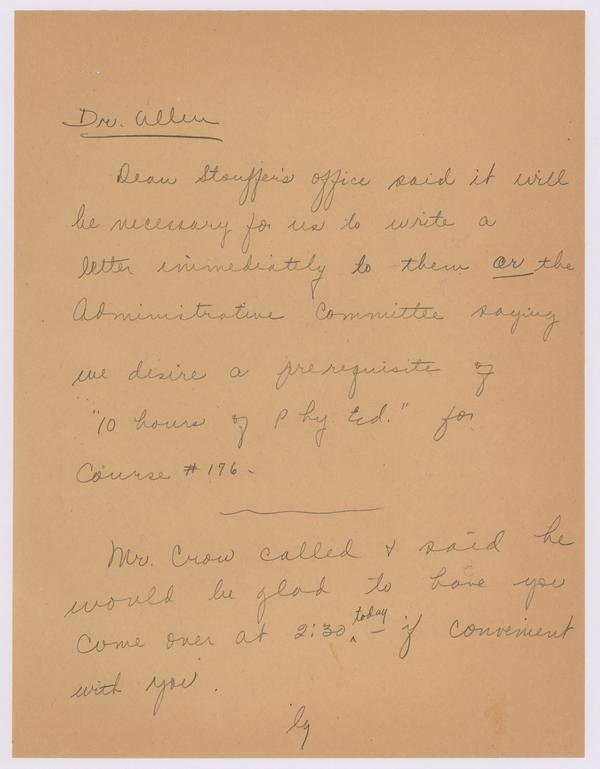 Dr. Allen
Dean Stouffer's office said it will
be necessary for us to write a
letter immediately to them or the
Administrative Committee saying
we desire a prerequisite of
"10 hours of Phy. Ed." for
Course #176-
Mr. Crow called & said he
would be glad to have you
come over at 2:30 today - if convenient
with you.
lg